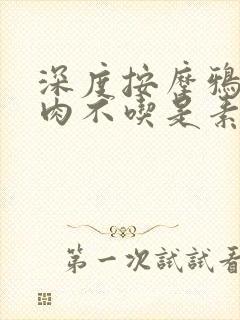 深度按摩鴉
肉不喫是素
第一次試試看